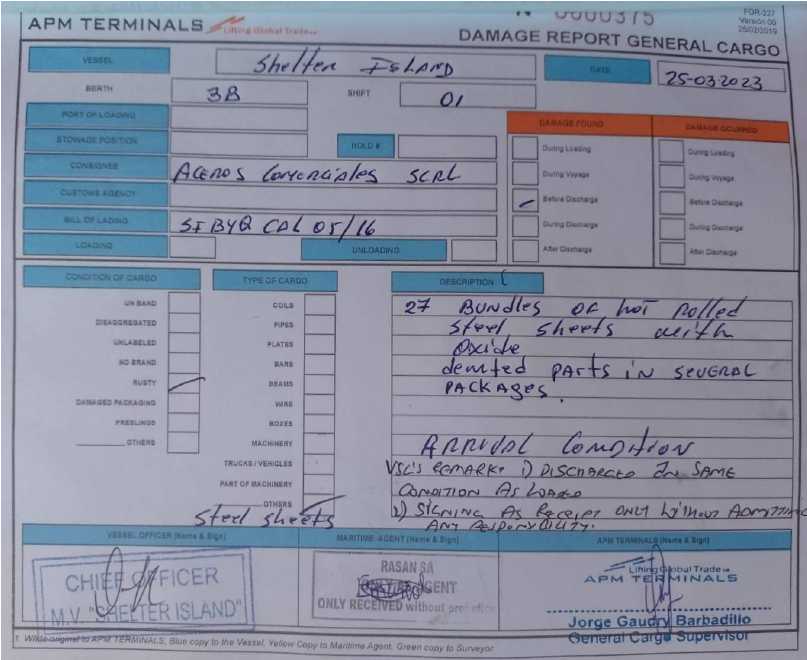 APM TERMINALS
Lifting Global Trade
N° 0000375
FOR-227
Versión 00
25/02/2019
DAMAGE REPORT GENERAL CARGO
VESSEL Shelter Island DATE 25-03-2023
BERTH 3B SHIFT 01
PORT OF LOADING
STOWAGE POSITION HOLD #
CONSIGNEE Aceros Comerciales SCRL
CUSTOMS AGENCY
BILL OF LADING SIBYQ CAL 05/16
LOADING UNLOADING
DAMAGE FOUND
During Loading
During Voyage
Before Discharge
During Discharge
After Discharge
DAMAGE OCURRED
During Loading
During Voyage
Before Discharge
During Discharge
After Discharge
CONDITION OF CARGO
UN BAND
DISAGGREGATED
UNLABELED
NO BRAND
RUSTY
DAMAGED PACKAGING
PRESLINGS
OTHERS
TYPE OF CARGO
COILS
PIPES
PLATES
BARS
BEAMS
WIRE
BOXES
MACHINERY
TRUCKS / VEHICLES
PART OF MACHINERY
OTHERS
Steel sheets
DESCRIPTION
27 Bundles of hot rolled
steel sheets with
Oxide
dented parts in several
packages.
ARRIVAL CONDITION
VSL'S REMARK: 1) DISCHARGED IN SAME
CONDITION AS LOADED
2) SIGNING AS RECEIPT ONLY WITHOUT ADMITTING
ANY RESPONSIBILITY.
VESSEL OFFICER (Name & Sign)
CHIEF OFFICER
M.V. "SHELTER ISLAND"
MARITIME AGENT (Name & Sign)
RASAN SA
AGENT
ONLY RECEIVED without prejudice
APM TERMINALS (Name & Sign)
Lifting Global Trade
APM TERMINALS
Jorge Gaudry Barbadillo
General Cargo Supervisor
1. White original to APM TERMINALS, Blue copy to the Vessel, Yellow Copy to Maritime Agent, Green copy to Surveyor